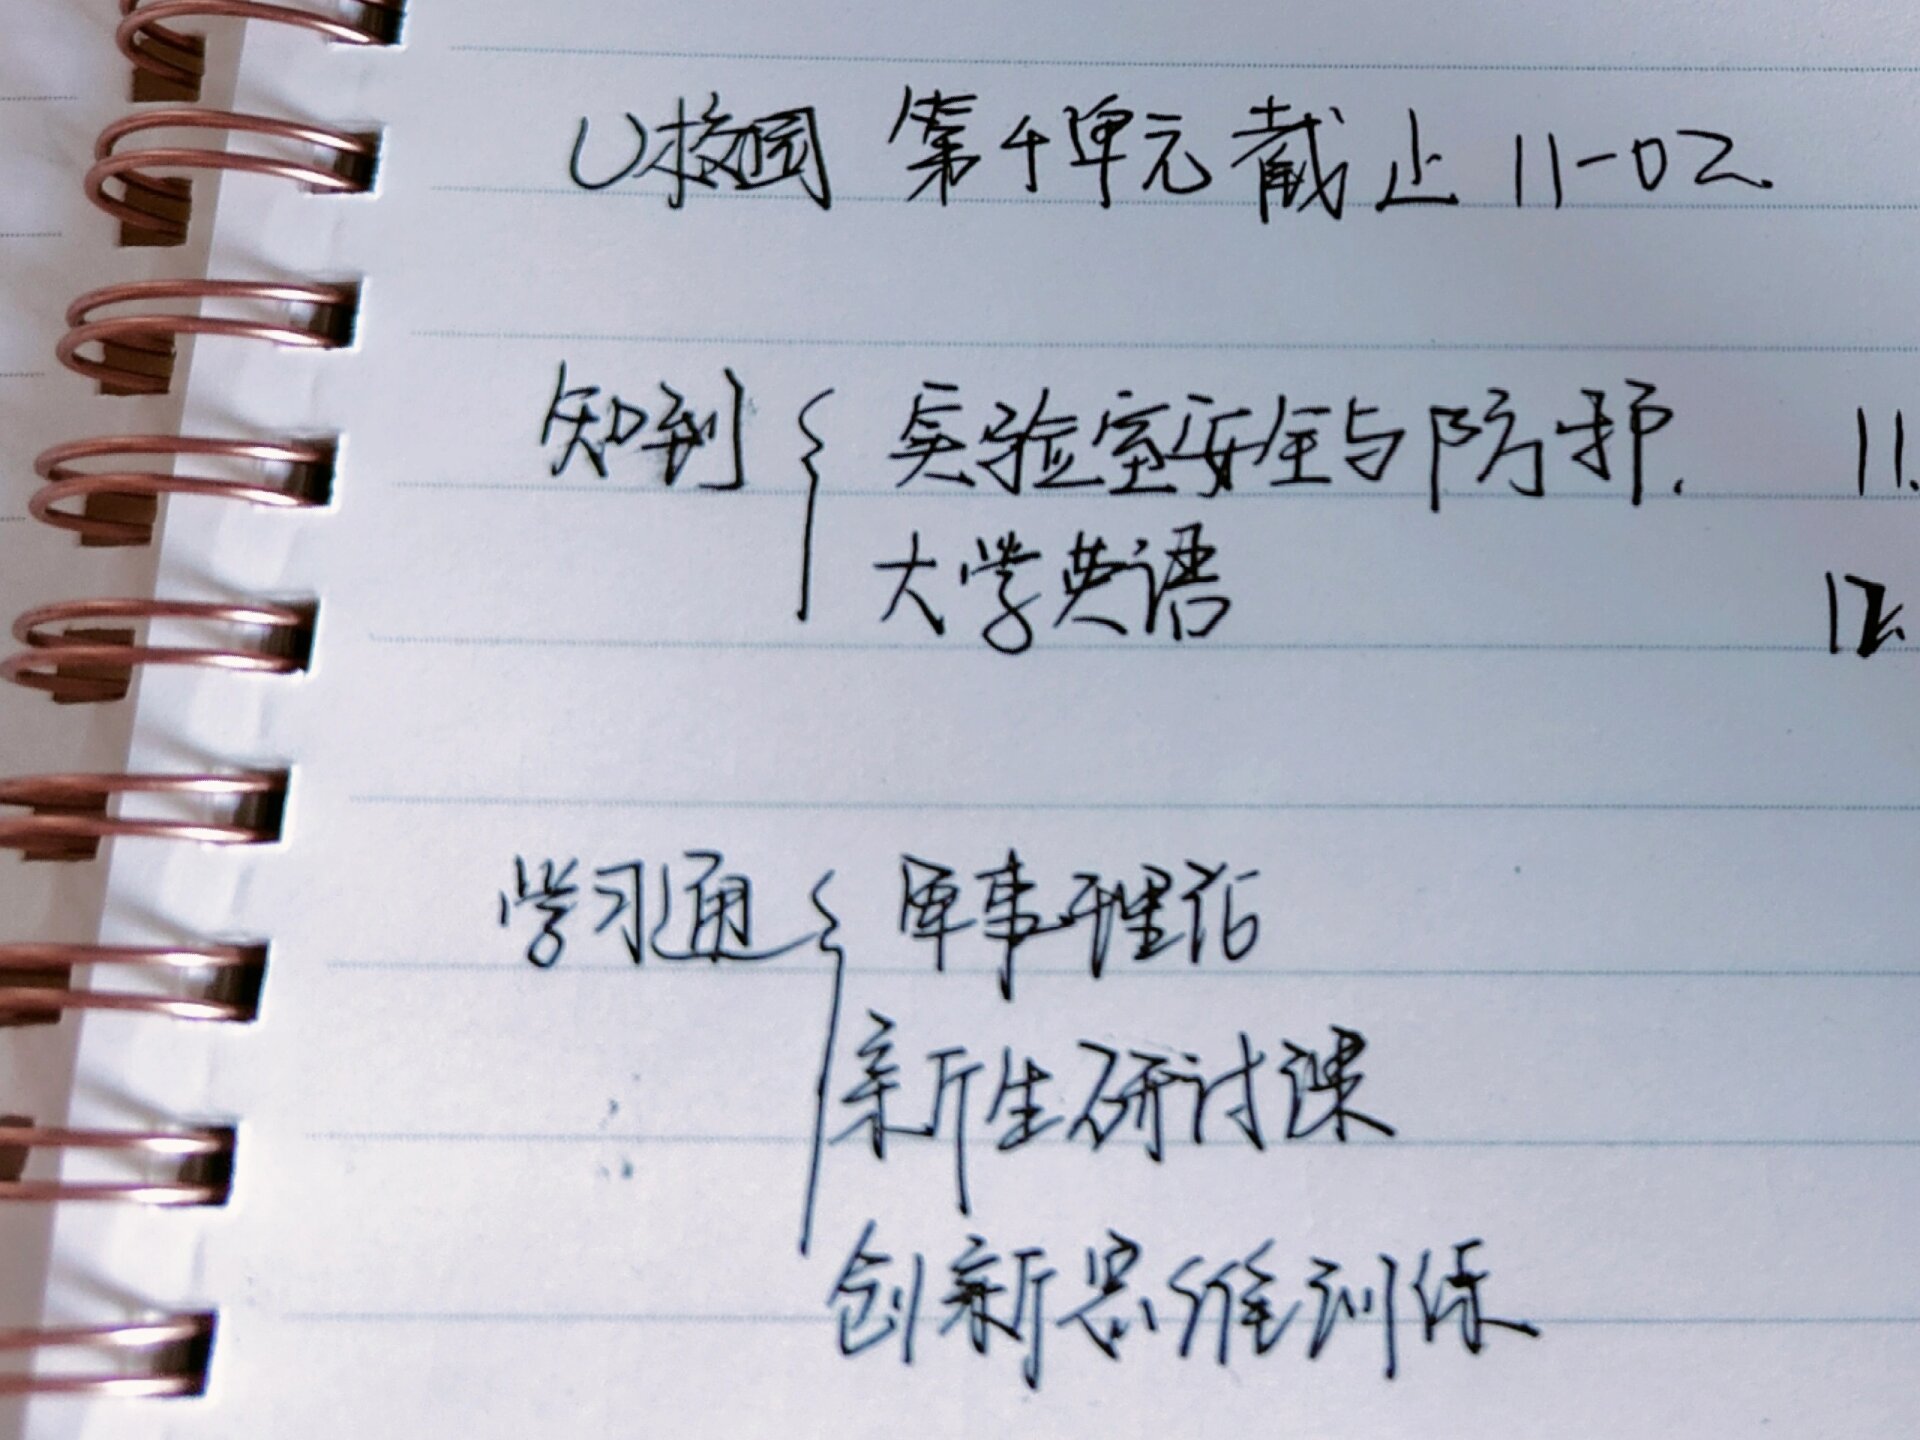 U校园 第4单元截止 11-02.
知到 { 实验室安全与防护. 11.
大学英语 12.
学习通 { 军事理论
新生研讨课
创新思维训练